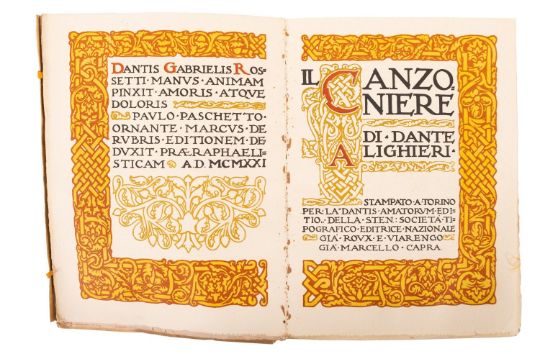 DANTIS GABRIELIS ROS-
SETTI MANVS ANIMAM
PINXIT AMORIS ATQVE
DOLORIS
PAVLO PASCHETTO
ORNANTE MARCVS DE
RVBRIS EDITIONEM DE-
DVXIT PRÆRAPHAELI-
STICAM A·D MCMXXI
IL CANZO-
NIERE
DI·DANTE
ALIGHIERI·
STAMPATO·A·TORINO
PER·LA·DANTIS·AMATORVM·EDI-
TIO·DELLA·STEN·SOCIETÀ·TI-
POGRAFICO·EDITRICE·NAZIONALE
GIÀ·ROVX·E·VIARENGO
GIÀ·MARCELLO·CAPRA·